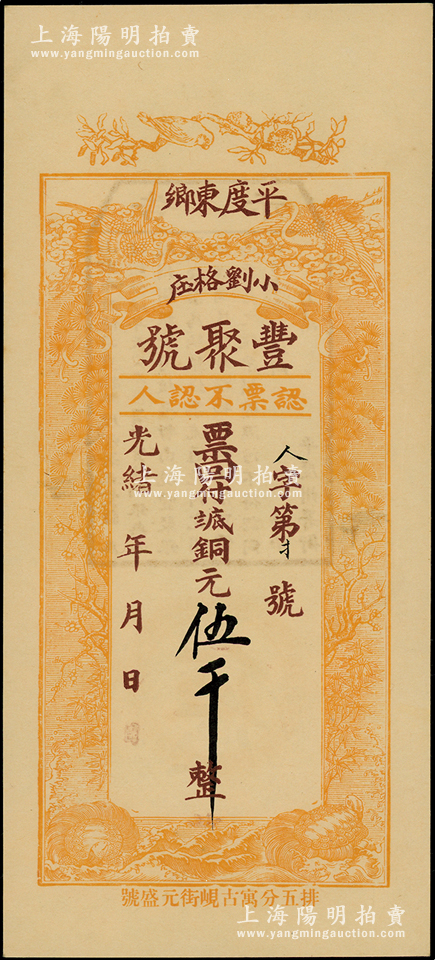 上海陽明拍賣
www.yangmingauction.com
平度東鄉
小劉格庄
豐聚號
認票不認人
人字第 號
票
銅元伍千整
光緒 年 月 日
上海陽明拍賣
www.yangmingauction.com
排五分寓古峴街元盛號
上海陽明拍賣
www.yangmingauction.com